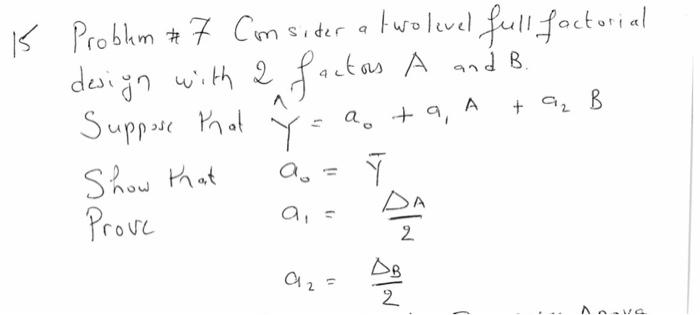 15 Problem # 7 Consider a two level full factorial
design with 2 factors A and B.
Suppose that Ŷ = a₀ + a₁ A + a₂ B
Show that a₀ = Ȳ
Prove a₁ = ΔA / 2
a₂ = ΔB / 2